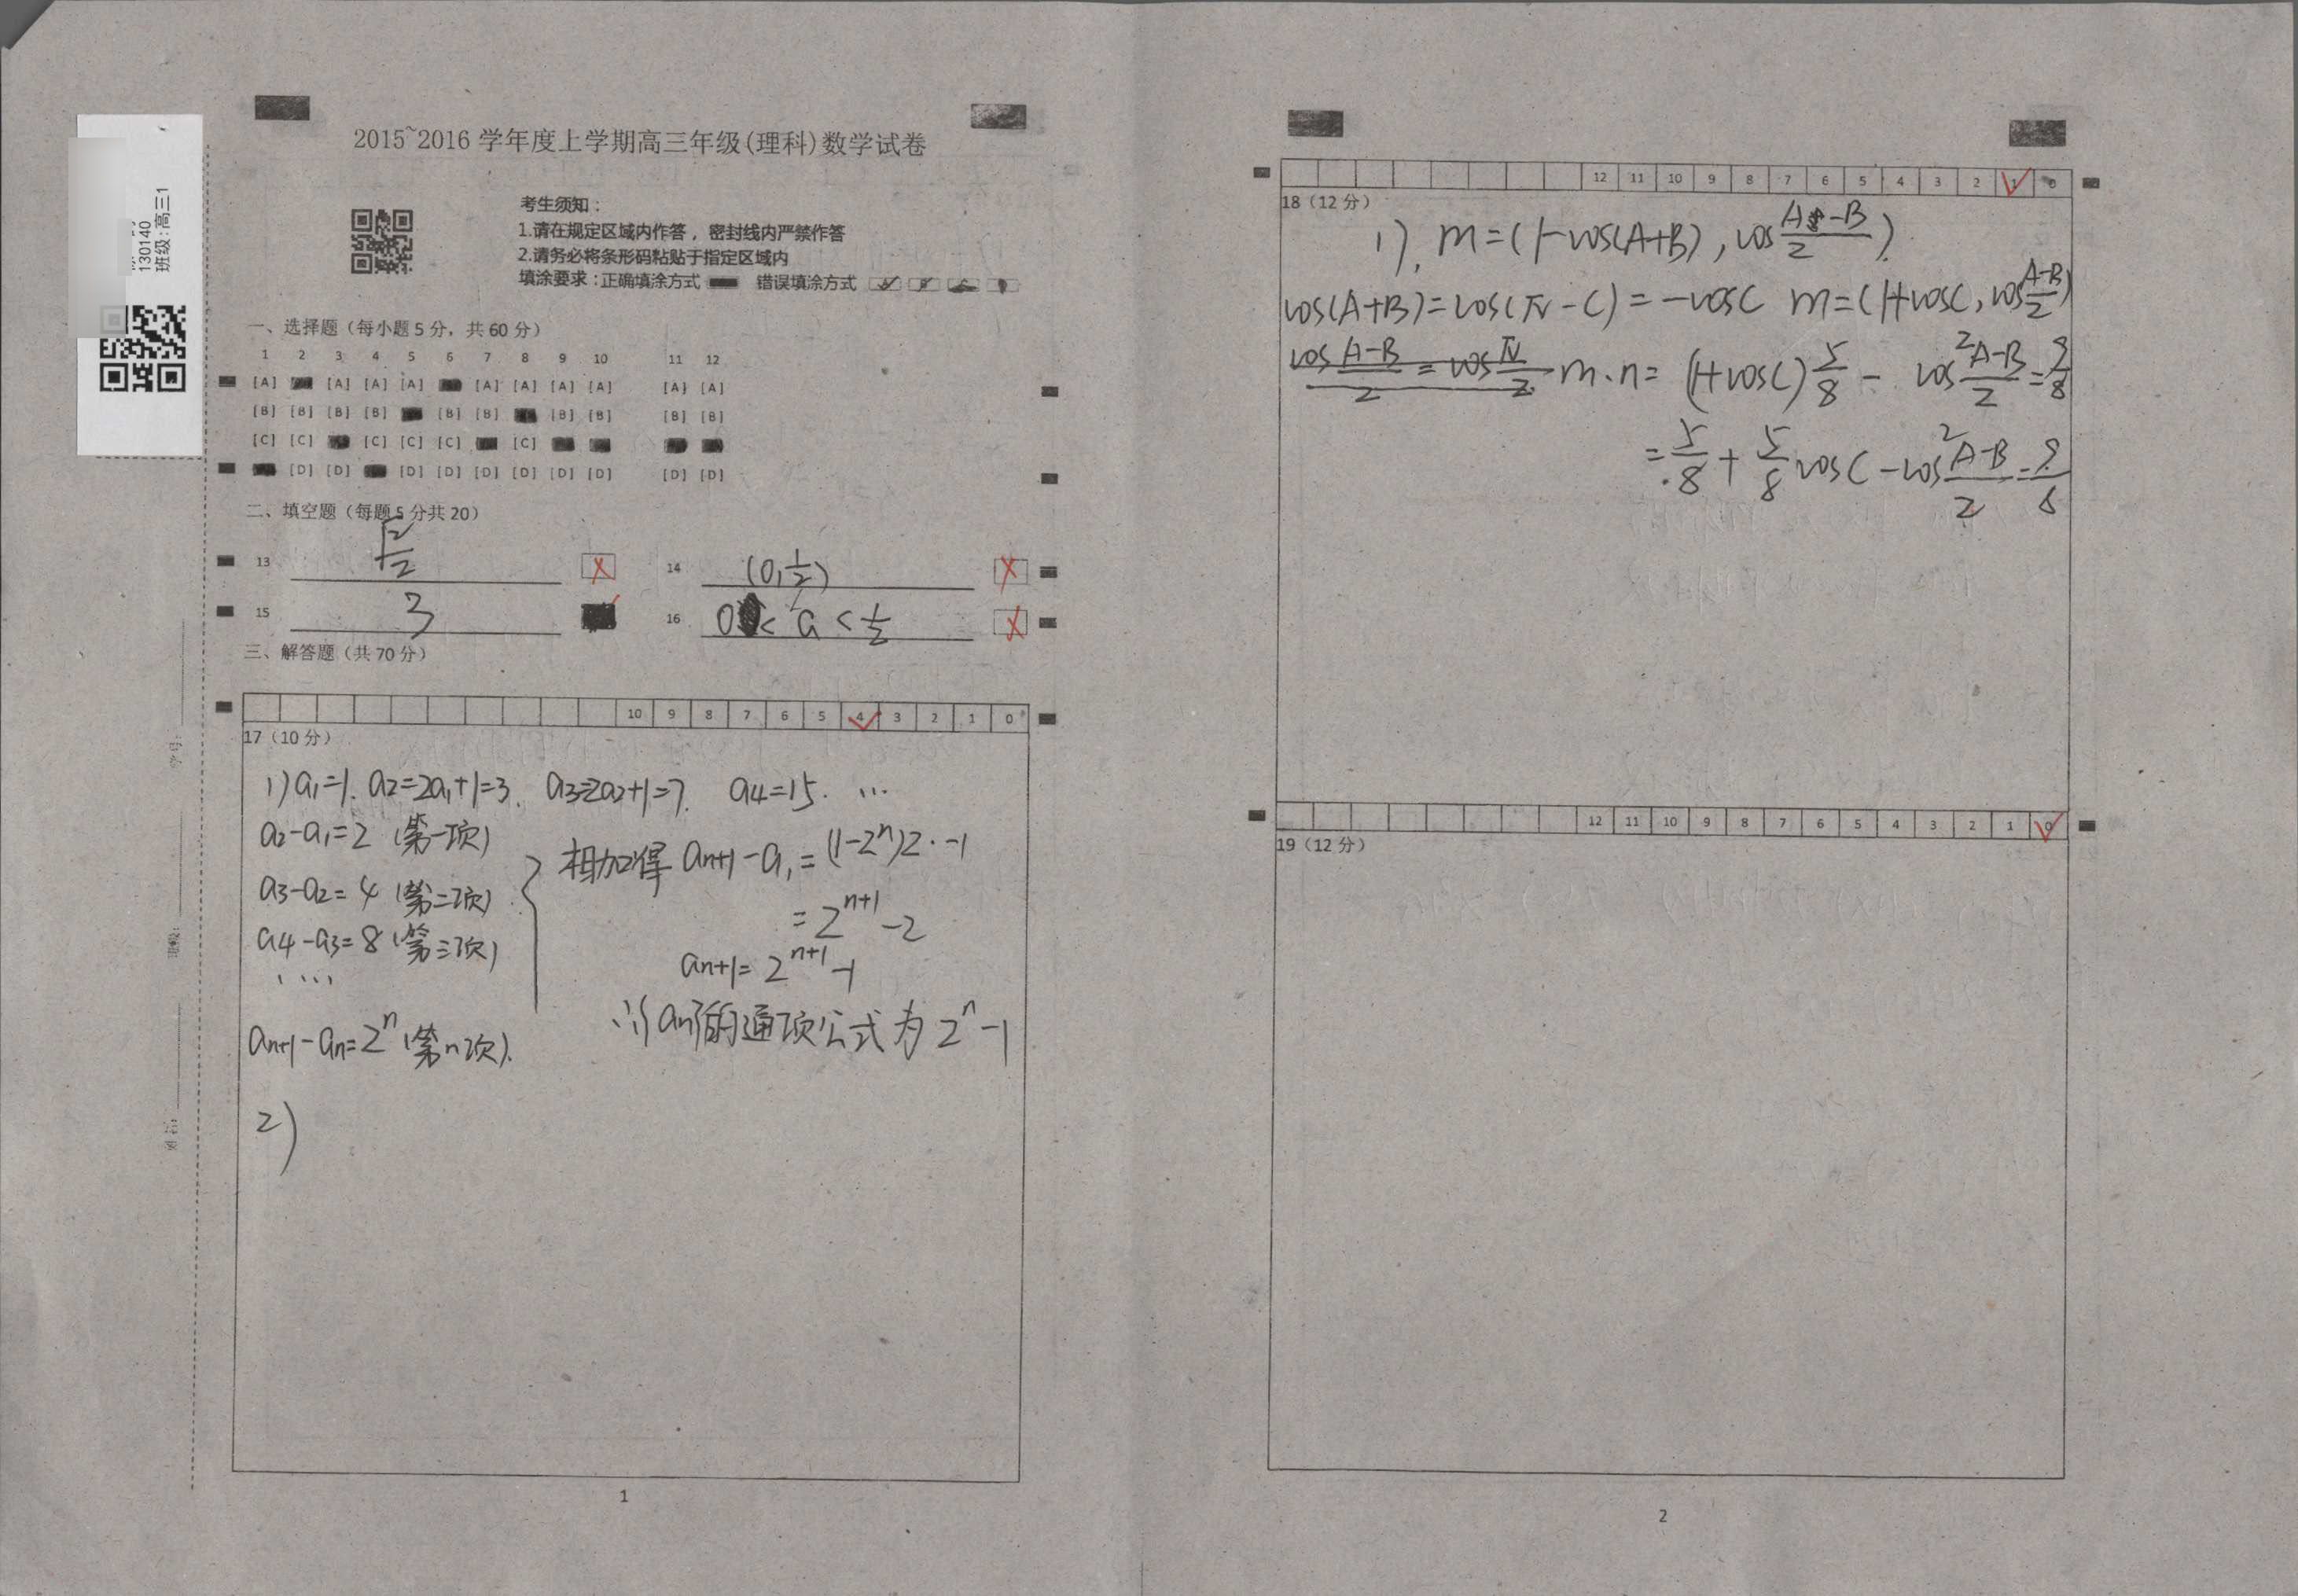 2015~2016 学年度上学期高三年级(理科)数学试卷
130140
班级:高三1
考生须知：
1.请在规定区域内作答，密封线内严禁作答
2.请务必将条形码粘贴于指定区域内
填涂要求：正确填涂方式 错误填涂方式
一、选择题（每小题 5 分，共 60 分）
1 2 3 4 5 6 7 8 9 10 11 12
[A] [A] [A] [A] [A] [A] [A] [A] [A] [A]
[B] [B] [B] [B] [B] [B] [B] [B] [B] [B]
[C] [C] [C] [C] [C] [C]
[D] [D] [D] [D] [D] [D] [D] [D] [D] [D]
二、填空题（每题 5 分共 20）
13 √2/2 X 14 (0,1/2) X
15 3 16 0< a < 1/2 X
三、解答题（共 70 分）
10 9 8 7 6 5 4 3 2 1 0
17（10 分）
1) a₁=1. a₂=2a₁+1=3. a₃=2a₂+1=7. a₄=15. …
a₂-a₁=2 (第一项)
a₃-a₂=4 (第二项)
a₄-a₃=8 (第三项)
....
aₙ₊₁-aₙ=2ⁿ (第n项).
相加得 aₙ₊₁-a₁=(1-2ⁿ)2·-1
=2ⁿ⁺¹-2
aₙ₊₁=2ⁿ⁺¹-1
∴{aₙ}的通项公式为 2ⁿ-1
2)
学号:
班级:
姓名:
1
12 11 10 9 8 7 6 5 4 3 2 1 0
18（12 分）
1). m=(1-cos(A+B), cos (A-B)/2).
cos(A+B)=cos(π-C)=-cosC m=(1+cosC, cos (A-B)/2)
m·n=(1+cosC)5/8 - cos² (A-B)/2 = 9/8
=5/8+5/8 cosC-cos² (A-B)/2 = 9/8
12 11 10 9 8 7 6 5 4 3 2 1 0
19（12 分）
2